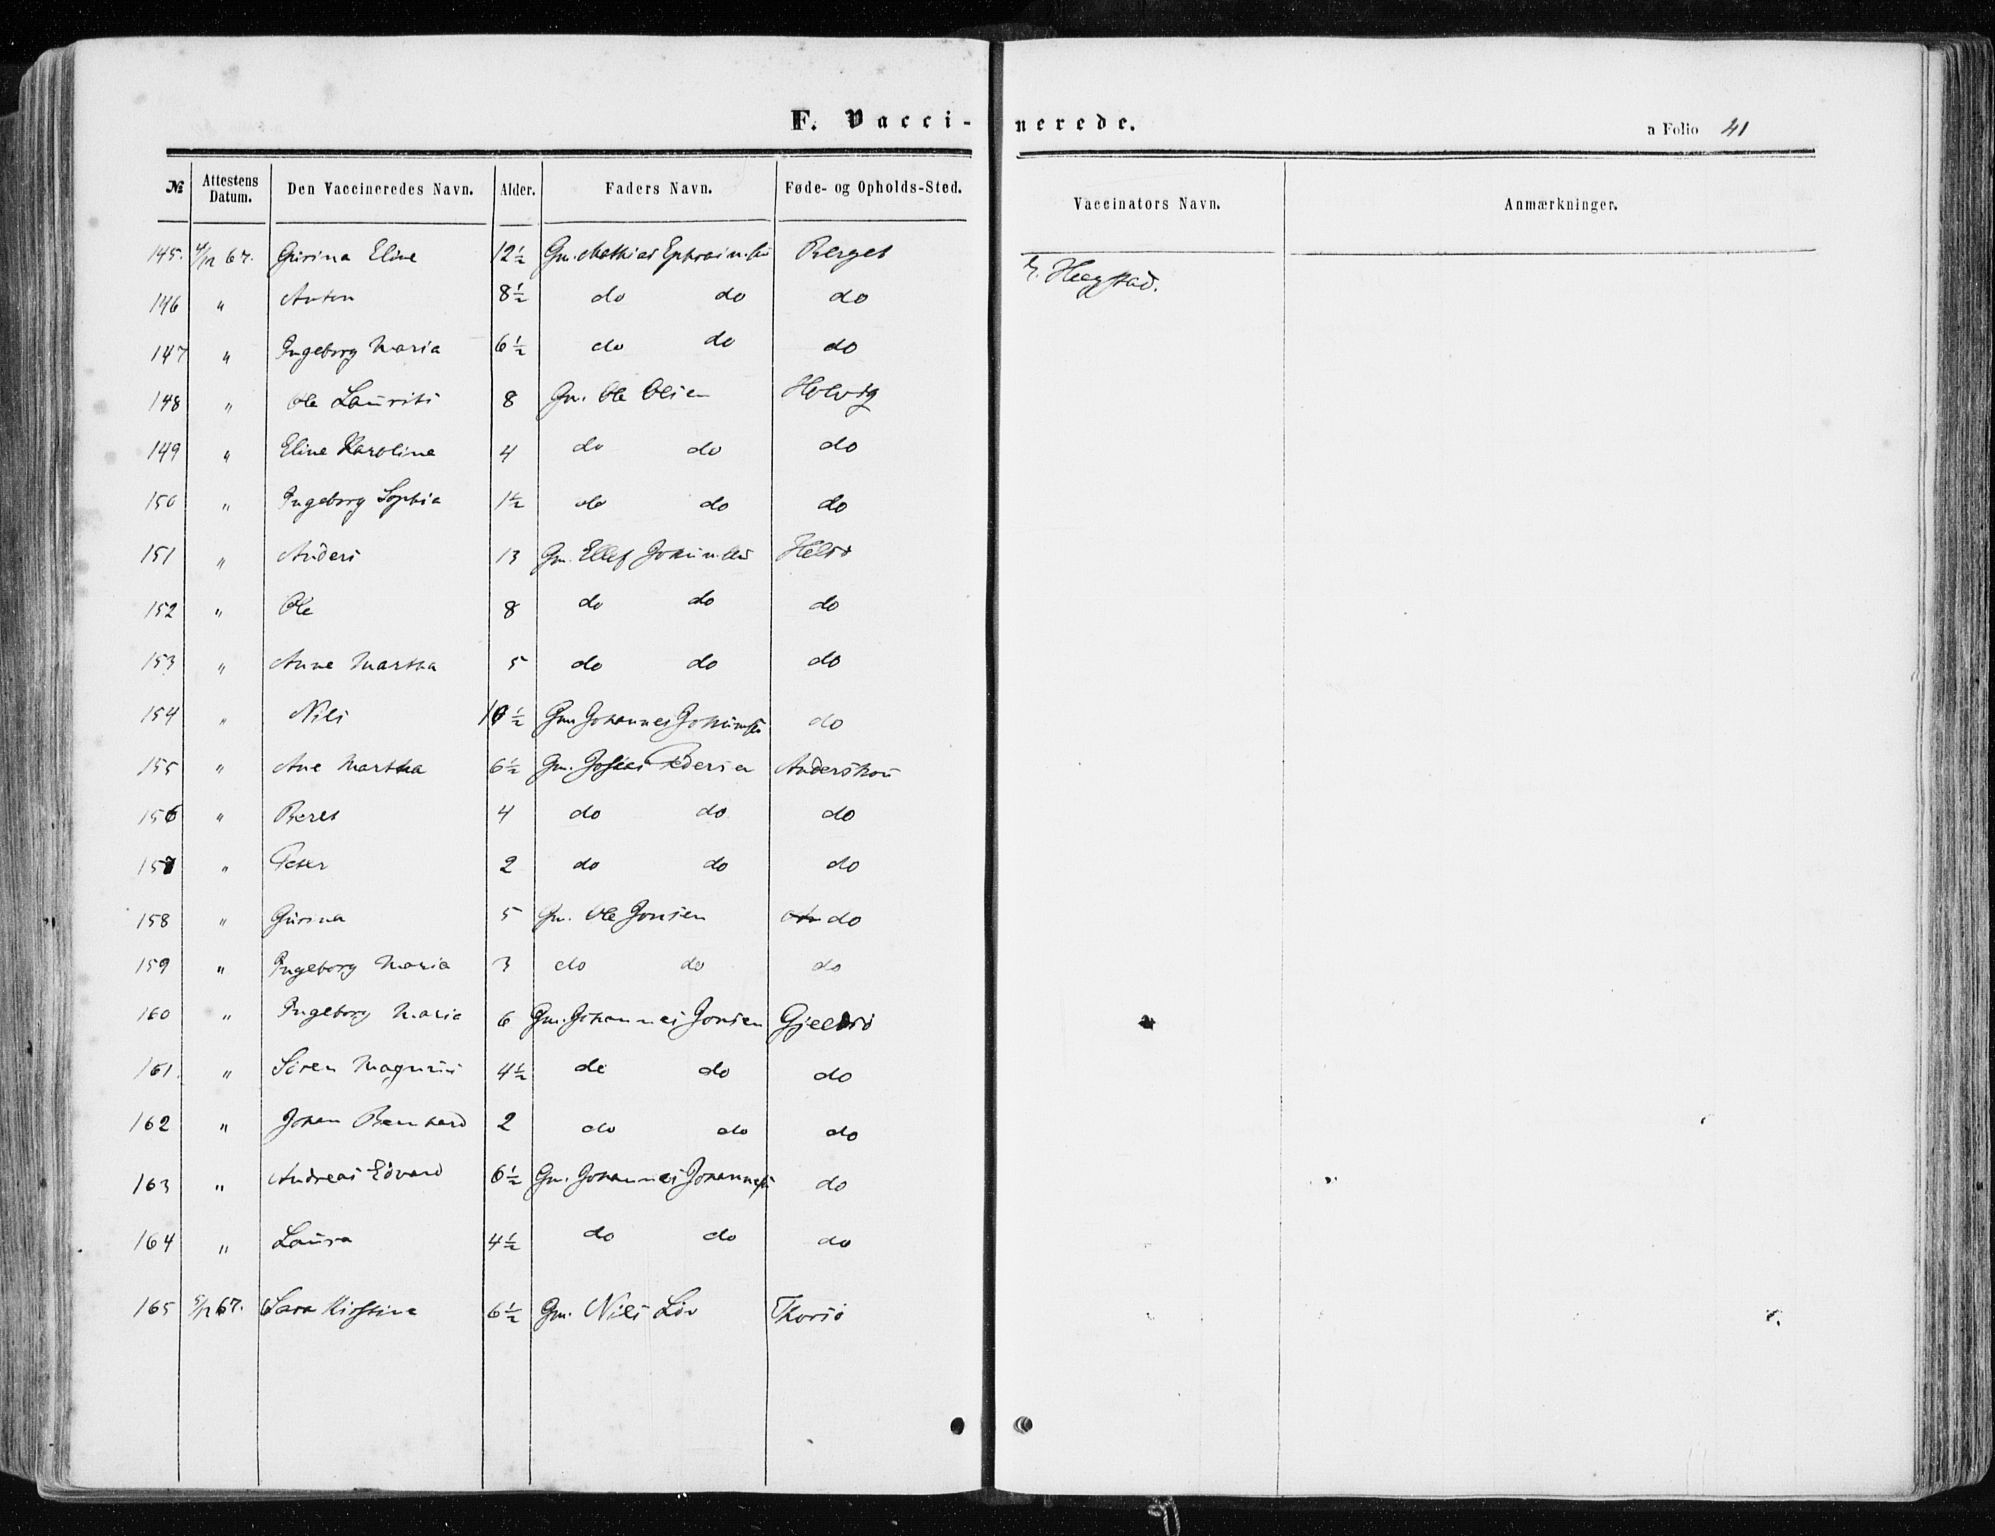 F. Vacci- nerede.
a Folio 41
№ Attestens Datum. Den Vaccineredes Navn. Alder. Faders Navn. Føde- og Opholds-Sted. Vaccinators Navn. Anmærkninger.
145. 4/12 67. Gurina Eline 12½ Gm. Mathias Ephraims. Berget
146 " Anton 8½ do do do
147 " Ingeborg Maria 6½ do do do
148 " Ole Laurits 8 Gm. Ole Olsen Holvig
149 " Eline Karoline 4 do do do
150 " Ingeborg Sophia 1½ do do do
151 " Anders 13 Gm. Ellef
152 " Ole 8 do do do
153 " Anne Martha 5 do do do
154 " Nils 10½ Gm. Johannes do
155 " Ane Martha 6½ Gm. Josias Pedersen
156 " Beret 4 do do do
157 " Peter 2 do do do
158 " Gurina 5 Gm. Ole Jonsen do
159 " Ingeborg Maria 3 do do do
160 " Ingeborg Maria 6 Gm. Johannes Jonsen
161. " Sören Magnus 4½ do do do
162 " Johan Bernhard 2 do do do
163 " Andreas Edvard 6½ Gm. Johannes do
164 " Laura 4½ do do do
165 5/12 67. Sara Kirstina 6½ Gm. Nils Thorsö